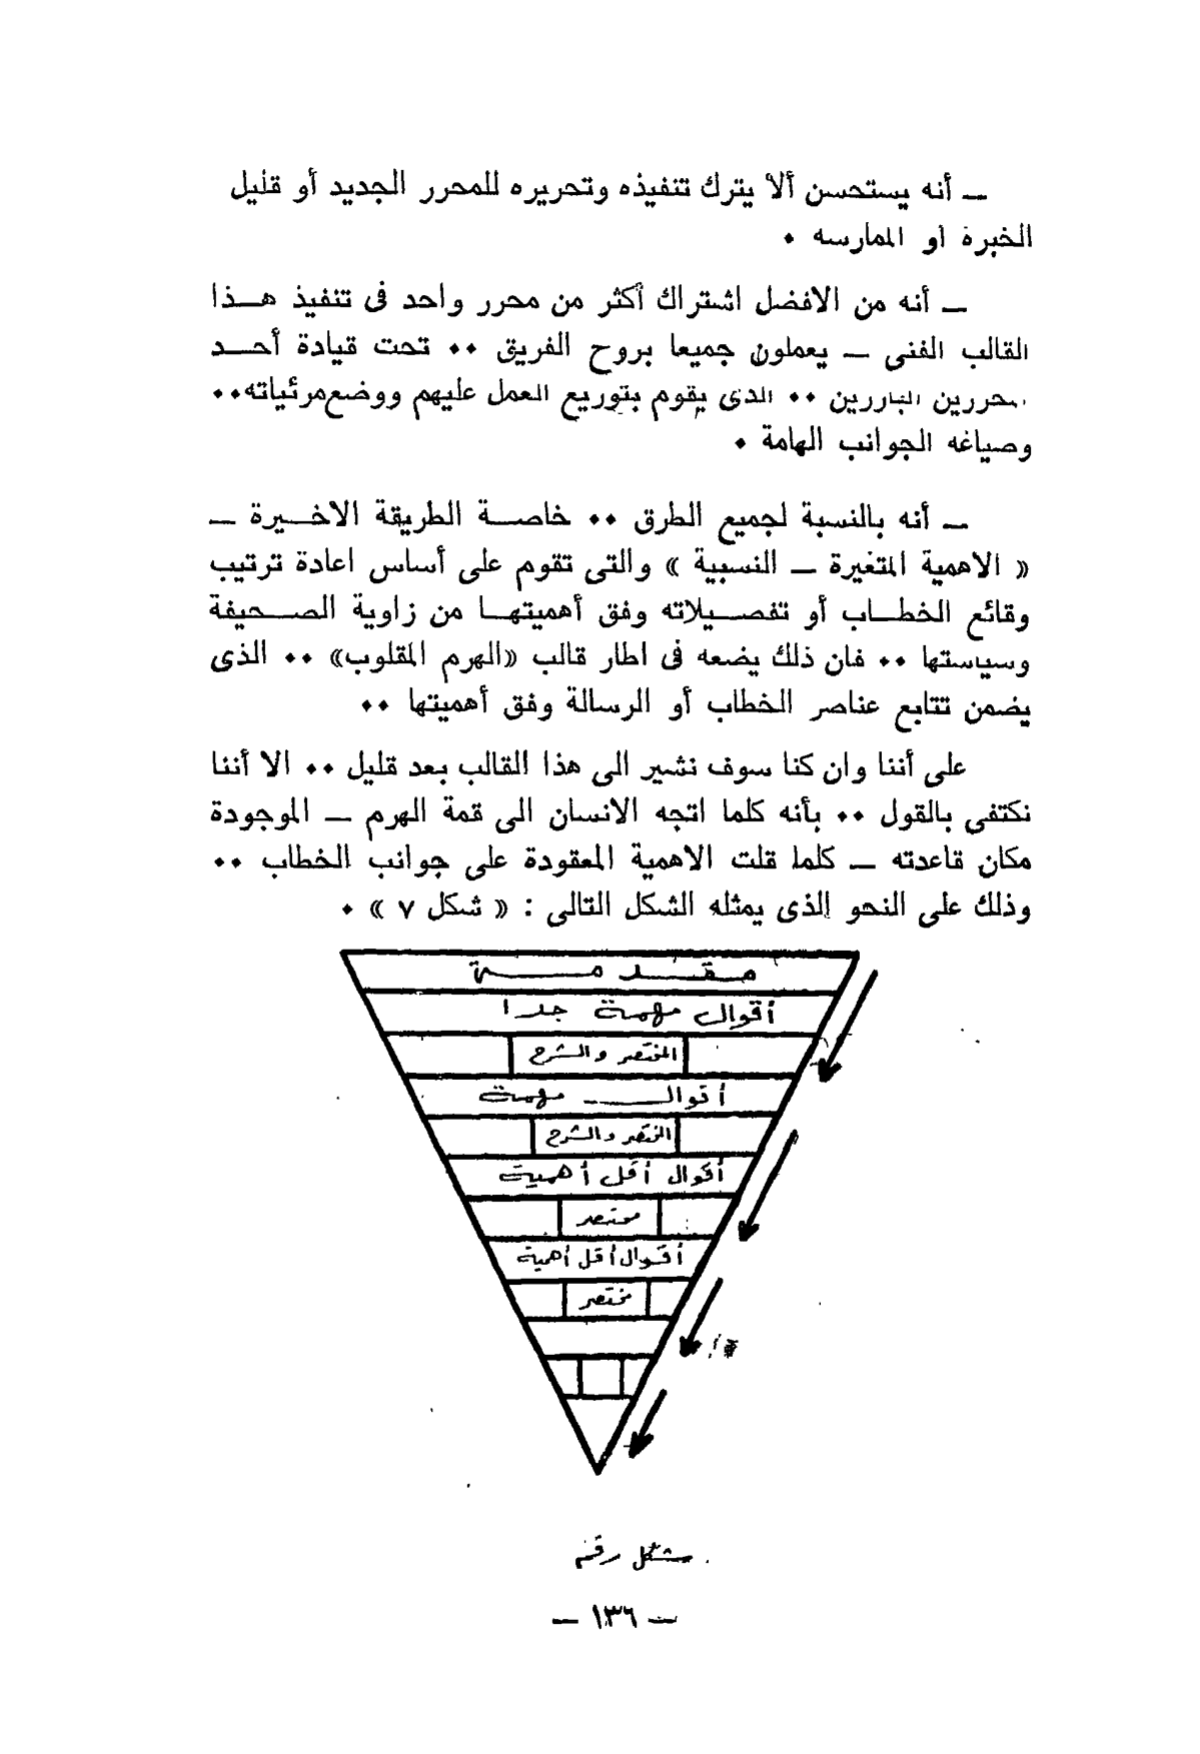 ــ أنه يستحسن ألا يترك تنفيذه وتحريره للمحرر الجديد أو قليل
الخبرة او الممارسه •
ــ أنه من الافضل اشتراك أكثر من محرر واحد فى تنفيذ هــذا
القالب الفنى ــ يعملون جميعا بروح الفريق •• تحت قيادة أحــد
المحررين البارزين •• الذى يقوم بتوزيع العمل عليهم ووضع مرئياته ••
وصياغه الجوانب الهامة •
ــ أنه بالنسبة لجميع الطرق •• خاصــة الطريقة الاخــيرة ــ
« الاهمية المتغيرة ــ النسبية » والتى تقوم على أساس اعادة ترتيب
وقائع الخطــاب أو تفصــيلاته وفق أهميتهــا من زاوية الصــحيفة
وسياستها •• فان ذلك يضعه فى اطار قالب «الهرم المقلوب» •• الذى
يضمن تتابع عناصر الخطاب أو الرسالة وفق أهميتها ••
على أننا وان كنا سوف نشير الى هذا القالب بعد قليل •• الا أننا
نكتفى بالقول •• بأنه كلما اتجه الانسان الى قمة الهرم ــ الموجودة
مكان قاعدته ــ كلما قلت الاهمية المعقودة على جوانب الخطاب ••
وذلك على النحو الذى يمثله الشكل التالى : « شكل ٧ » •
مقدمــــة
أقوال مهمة جدا
المختصر والشرح
أقوال ــــ مهمة
المختصر والشرح
أقوال أقل أهمية
مختصر
أقوال أقل أهمية
مختصر
شكل رقم
ــ ١٣٦ ــ